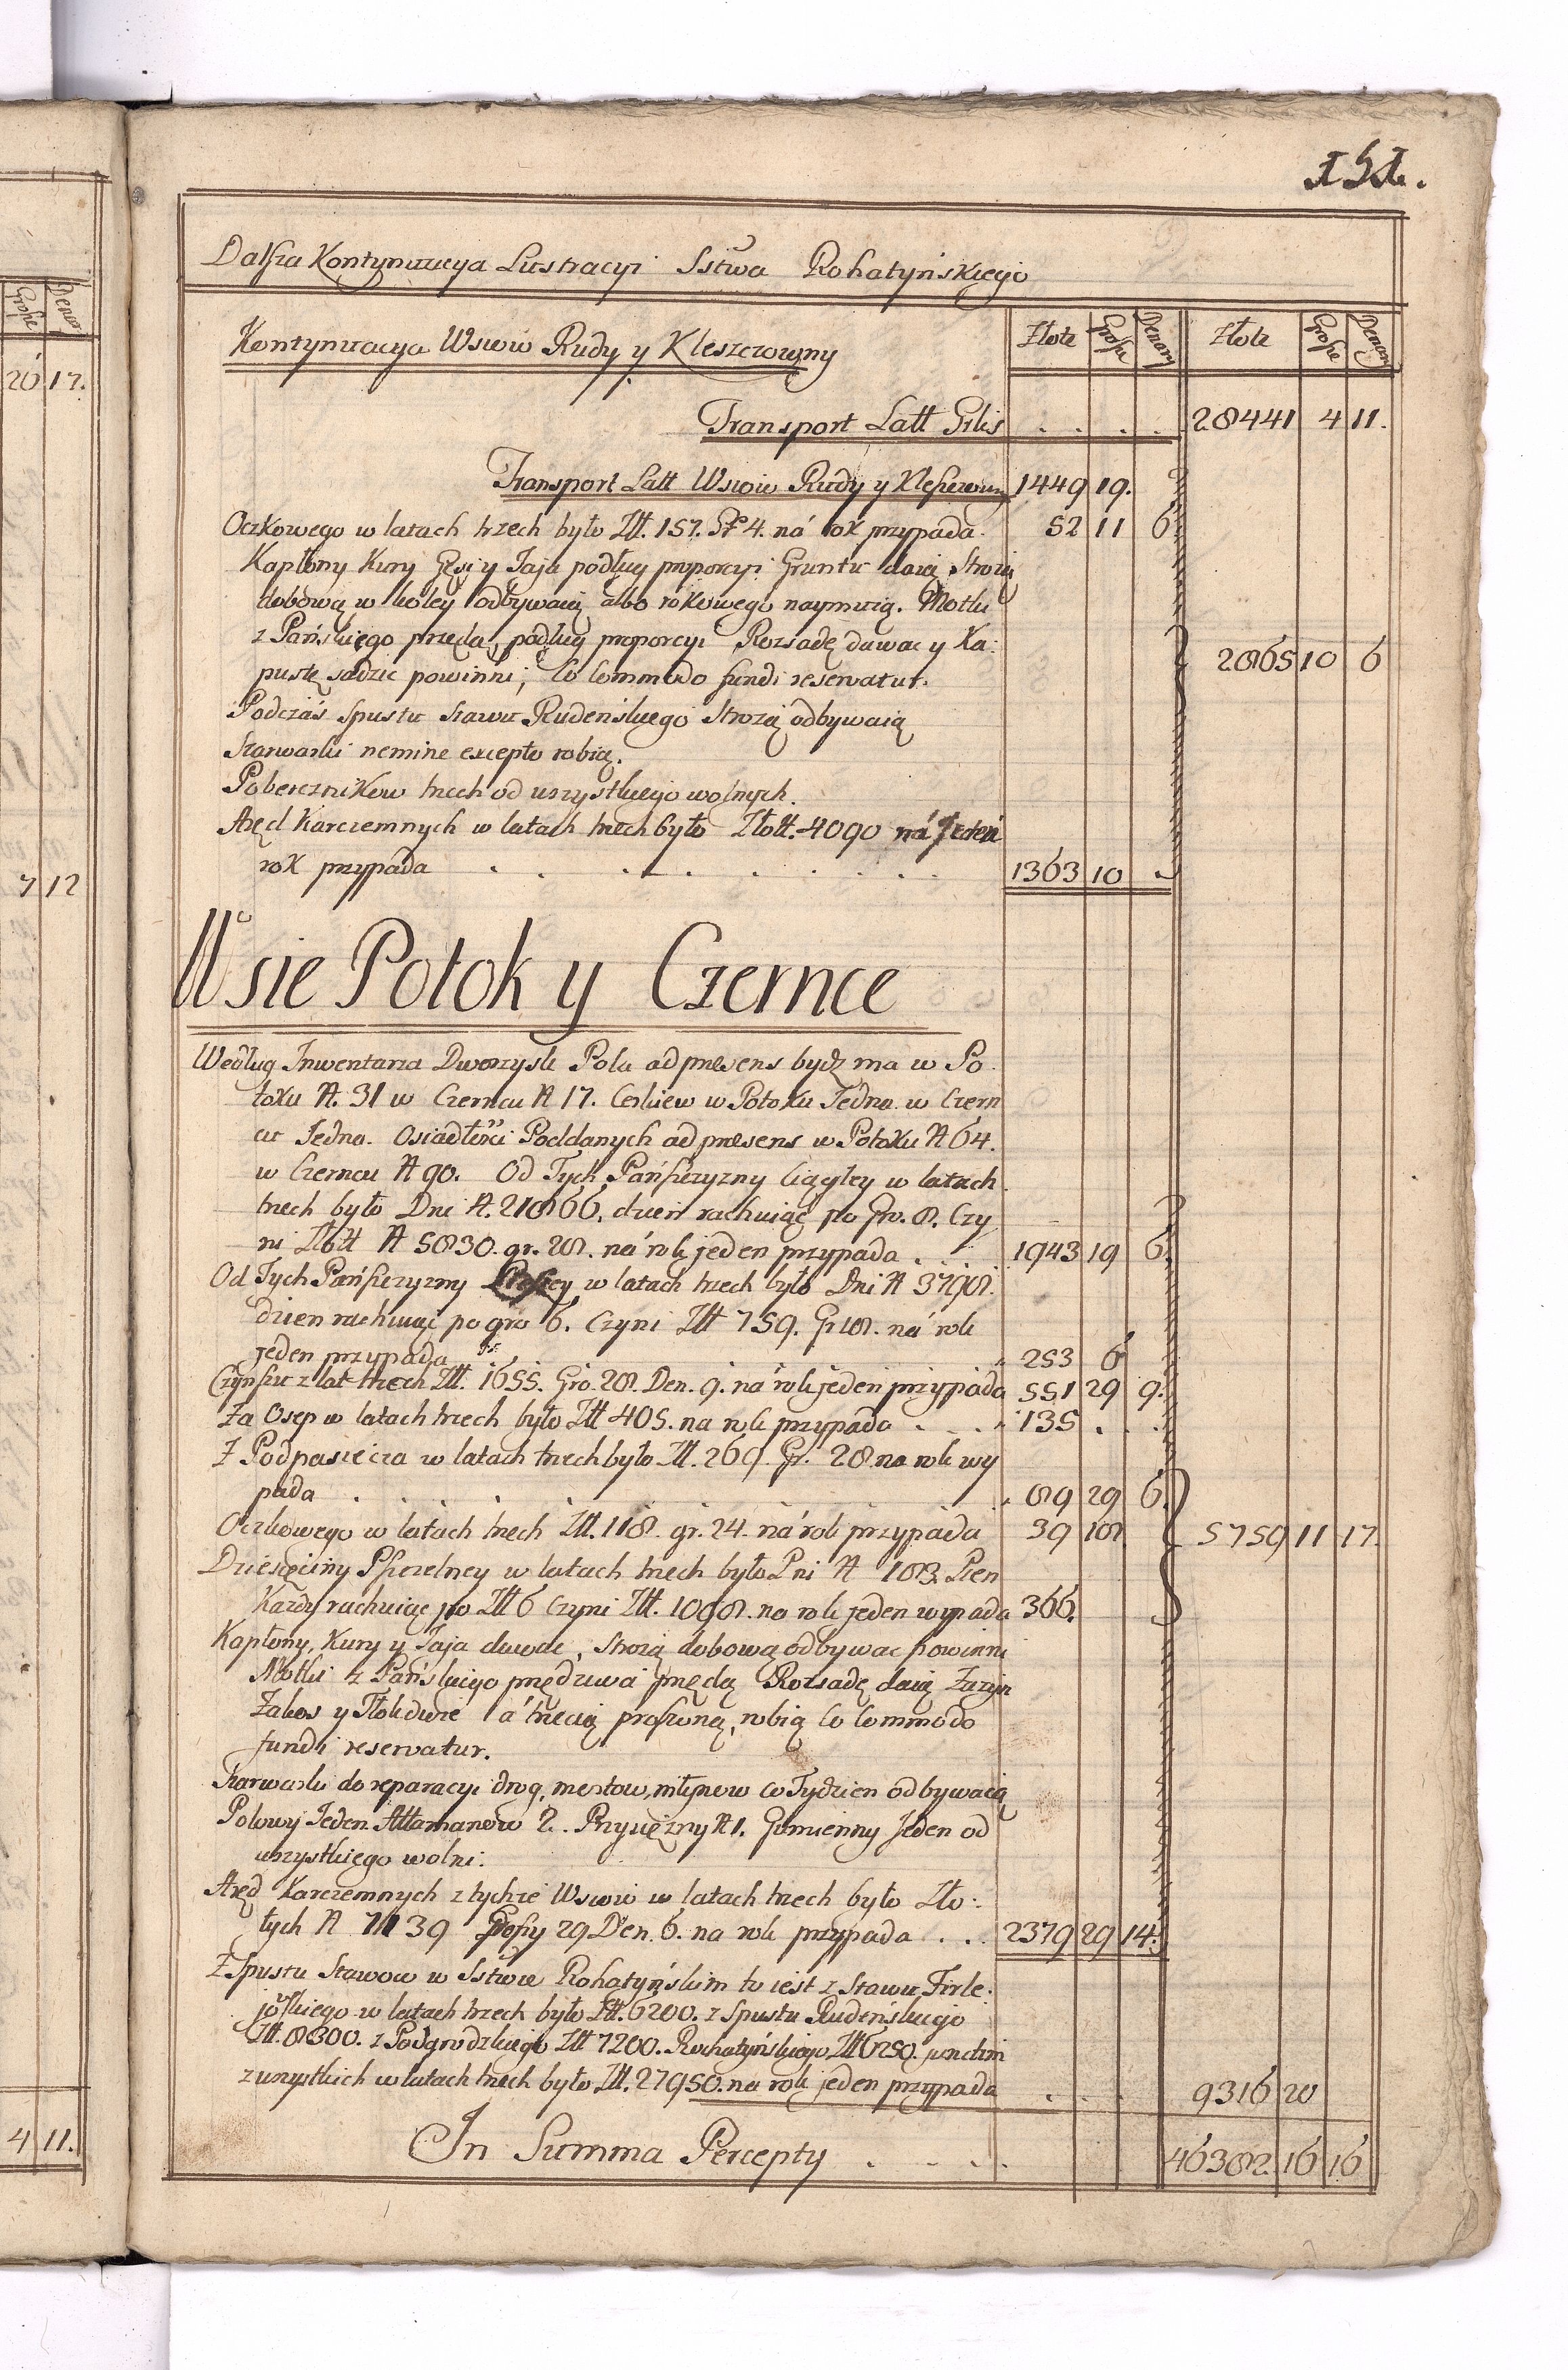 151.
Dalsza Kontynuacya Lustracyi Sstwa Rohatynskiego
Kontynuacya Wsiow Rudy y Kleszczowny
Złote Grosze Denary Złote Grosze Denary
Transport Latt Erlis . . . . 28441 4 11.
Transport Latt Wsiow Rudy y Kleszczowny 1449 19.
Oczkowego w latach trzech było Złł. 157. Gr 4. ná rok przypada. 52 11 6.
Kapłony Kury Gęsi y Jaja podług proporcyi Gruntu daią Strożą
dobową w koley odbywaią albo rokowego naymuią. Motki
z Pańskiego przędą, podług proporcyi Rozsadę dawac y Ka:
pustę sadzic powinni, Co Commodo fundi reservatur. 2865 10 6
Podczás Spustu Stawu Rudeńskiego Strożą odbywaią
Szarwarki nemine excepto robią.
Pobereznikow trzech od wszystkiego wolnych.
Aręd Karczemnych w latach trzech było Złott. 4090 ná Jeden
rok przypada . . . . . . . . 1363 10
Wsie Potok y Czernce
Według Inwentarza Dworzysk Pola ad præsens bydz ma w Po
toku N. 31 w Czerncu N 17. Cerkiew w Potoku Jedna w Czern
cu Jedna. Osiadłości Poddanych ad præsens w Potoku N 64.
w Czerncu N 90. Od Tych Pańszczyzny Ciągłey w latach
trzech było Dni N. 21866. dzień rachuiąc po Gro. 8. Czy
ni Złott N 5830. gr. 28. ná rok jeden przypada . . 1943 19 6.
Od Tych Pańszczyzny Pieszey w latach trzech było Dni N 3798.
dzien rachuiąc po gro 6. Czyni Złł 759. Gr 18. ná rok
jeden przypada 253 6
Czynszu z lat trzech Złł. 1655. Gro. 28. Den. 9. ná rok jeden przypada 551 29 9.
Za Osep w latach trzech było Złł 405. na rok przypada . . . 135 . .
Z Podpasieczá w latach trzech było Złł. 269. Gr. 28 na rok wy
pada . . . . . . 89 29 6.
Oczkowego w latach trzech Złł. 118. gr. 24. ná rok przypada 39 18 5759 11 17.
Dziesięciny Pszczelney w latach trzech było Pni N 183. Pien
Każdy rachuiąc po Złł 6 Czyni Złł. 1098. na rok jeden wypada 366.
Kapłony, Kury y Jaja dawac, Strożą dobową odbywac powinni
Motki z Pańskiego przędziwa przędą Rozsadę daią Zazyn
Zakos y Tłokdwie a trzecią proszoną, robią Co Commodo
fundi reservatur.
Szarwarki do reparacyi drog, mostow, młynow co Tydzien odbywaią
Polowy Jeden. Attamanow 2. Przysiężny N 1. Gumienny Jeden od
wszystkiego wolni.
Aręd Karczemnych z tychże Wsiow w latach trzech było Zło:
tych N 7139 Groszy 29 Den. 6. na rok przypada . . . 2379 29 14.
Z Spustu Stawow w Sstwie Rohatyńskim to iest z Stawu Firle:
jowskiego w latach trzech było Złł. 6200. z Spustu Rudeńskiego
Złł. 8300. z Podgrodzkiego Złł 7200. Rohatyńskiego Złł 6250. junctim
z wszystkich w latach trzech było Złł. 27950. na rok jeden przypada . . . 9316 20
In Summa Percepty . . . . 46382 16 16